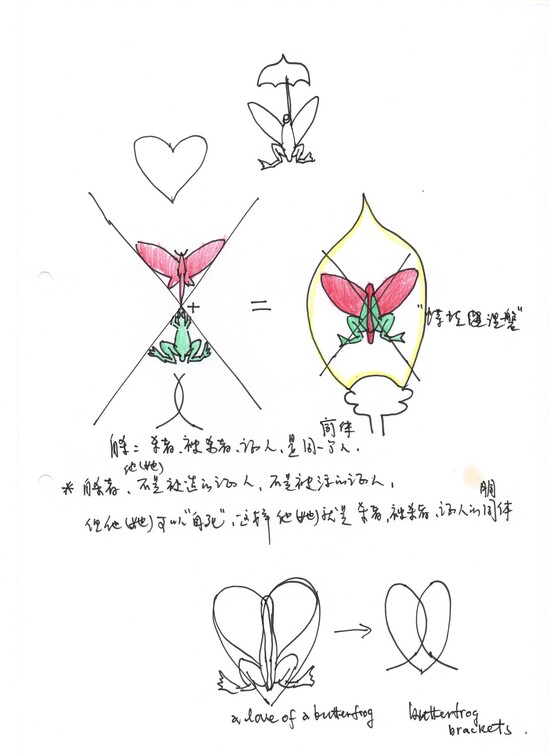 + =
涅槃"
同体
自杀：杀者、被杀者、证人，是同一个人，
他(她)
* 自杀者，不是被 的证人，不是被 的证人，
胴
但他(她)可以" "，这样他(她)就是杀者，被杀者，证人的同体
a love of a butterfrog
butterfrog
brackets.